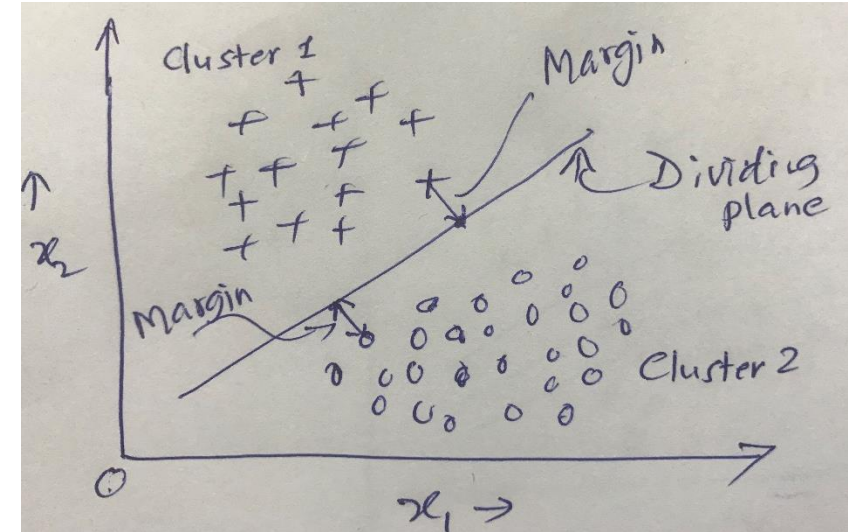 Cluster 1
Margin
Dividing
plane
x₂
Margin
Cluster 2
O
x₁ →